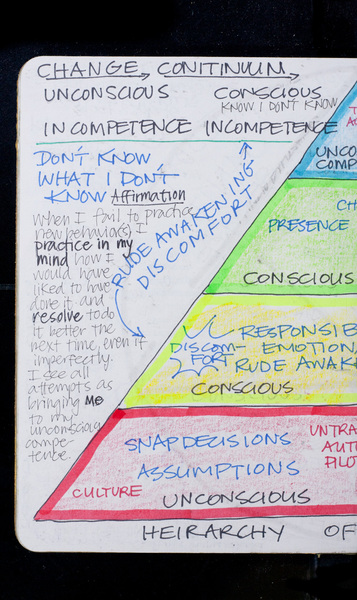 CHANGE CONITINUUM
UNCONSCIOUS CONSCIOUS
KNOW I DON'T KNOW
INCOMPETENCE INCOMPETENCE
DON'T KNOW
WHAT I DON'T
KNOW Affirmation
when I fail to practice
new behaviors, I
practice in my
mind how I
would have
liked to have
done it and
resolve to do
it better the
next time, even if
imperfectly.
I see all
attempts as
bringing me
to my
unconscious
compe-
tence.
RUDE AWAKENING
DISCOMFORT
UNCO
COMP
CH
PRESENCE
CONSCIOUS
RESPONSIB
DISCOM-
FORT
EMOTION
RUDE AWAK
CONSCIOUS
SNAP DECISIONS
ASSUMPTIONS
UNTRA
AUT
PILO
CULTURE
UNCONSCIOUS
HEIRARCHY OF